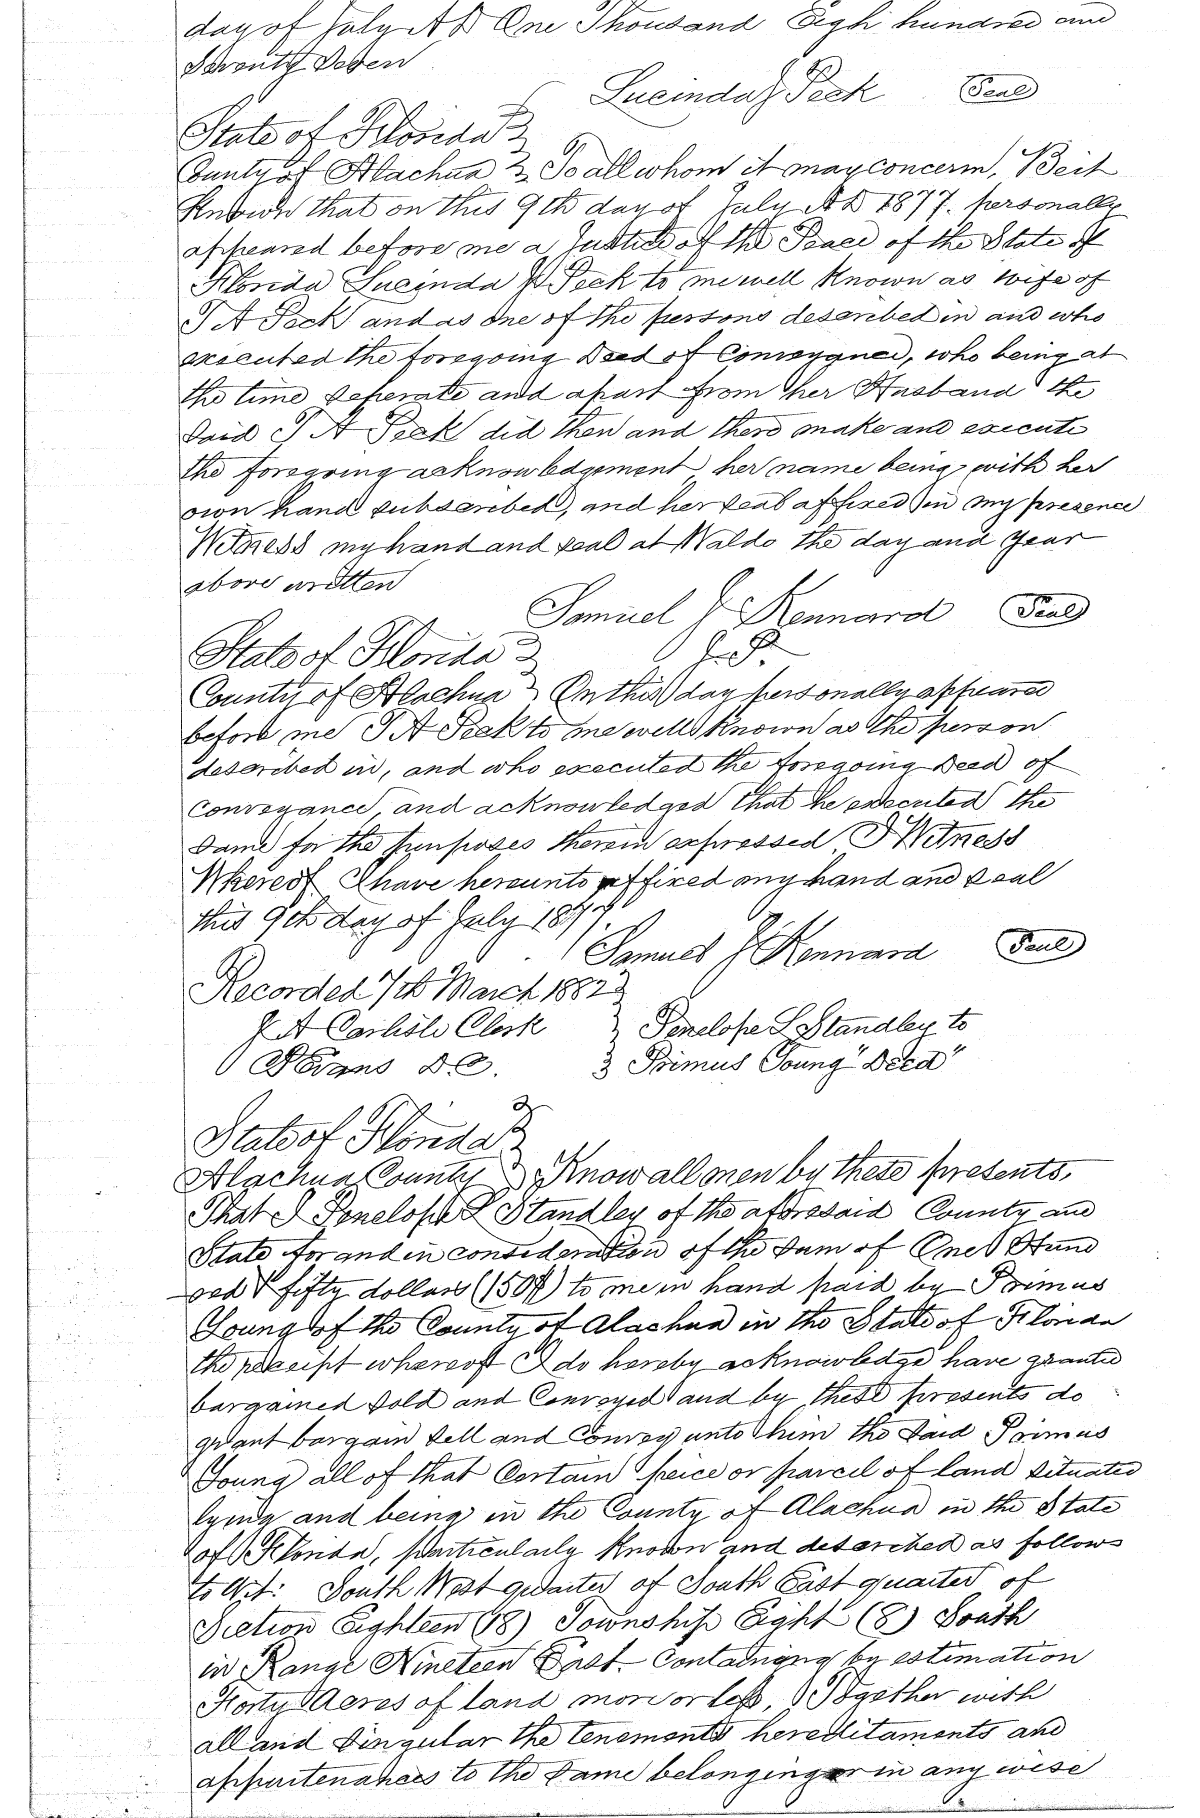 day of July A D One Thousand Eigh hundred and
Seventy Seven
Lucinda J Peck Seal
State of Florida
County of Alachua To all whom it may concern, Beit
Known that on this 9th day of July A D 1877. personally
appeared before me a Justice of the Peace of the State of
Florida Lucinda Peck to me well Known as wife of
T A Peck and as one of the persons described in and who
executed the foregoing Deed of Conveyance, who being at
the time seperate and apart from her Husband the
Said T A Peck did then and there make and execute
the foregoing acknowledgement, her name being with her
own hand subscribed, and her seal affixed in my presence
Witness my hand and seal at Waldo the day and year
above written
Samuel J Kennard Seal
J.P.
State of Florida
County of Alachua On this day personally appeared
before me T A Peck to me well Known as the person
described in, and who executed the foregoing Deed of
Conveyance, and acknowledged that he executed the
Same for the purposes therein expressed I Witness
Whereof I have hereunto affixed my hand and seal
this 9th day of July 1877.
Samuel J Kennard Seal
Recorded 7th March 1882
J A Carlisle Clerk Penelope L Standley to
Evans D.C. Primus Young "Deed"
State of Florida
Alachua County Know all men by these presents,
That I Penelope L Standley of the aforesaid County and
State for and in consideration of the Sum of One Hund
red & fifty dollars (150$) to me in hand paid by Primus
Young of the County of Alachua in the State of Florida
the receipt whereof I do hereby acknowledge have granted
bargained Sold and Conveyed and by these presents do
grant bargain sell and Convey unto him the Said Primus
Young all of that Certain peice or parcel of land situated
lying and being in the County of Alachua in the State
of Florida, particularly Known and described as follows
to wit: South West quarter of South East quarter of
Section Eighteen (18) Township Eight (8) South
in Range Nineteen East. Containing by estimation
Forty Acres of land more or less, Together with
all and Singular the tenements hereditaments and
appurtenances to the Same belonging or in any wise